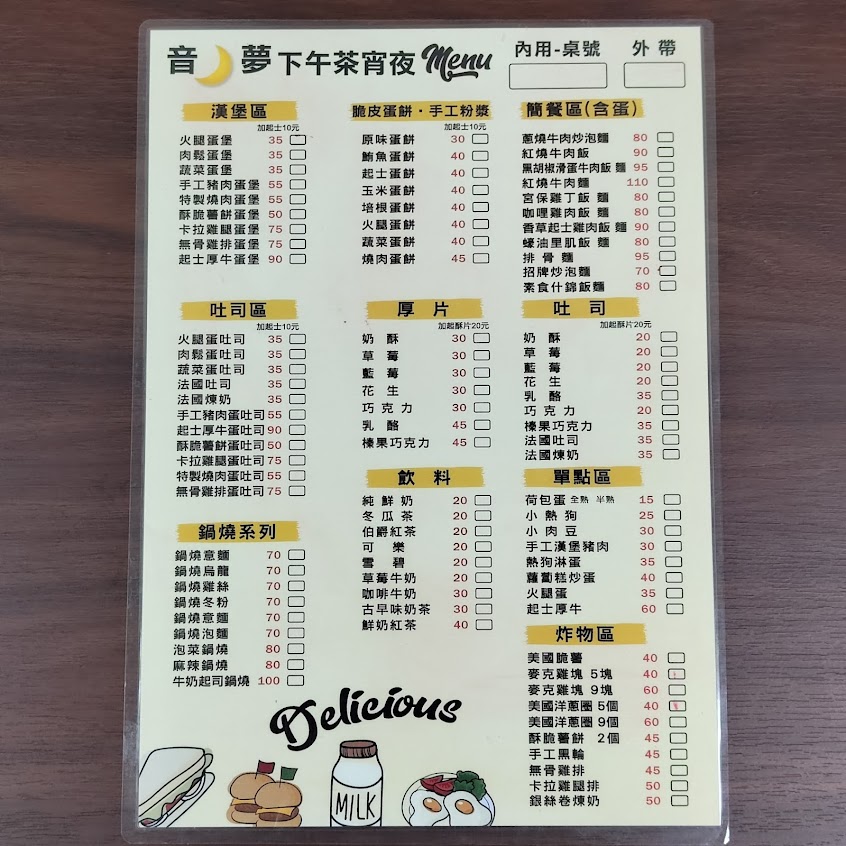 音 夢 下午茶宵夜 Menu
內用-桌號 外帶
漢堡區
加起士10元
火腿蛋堡 35
肉鬆蛋堡 35
蔬菜蛋堡 35
手工豬肉蛋堡 55
特製燒肉蛋堡 55
酥脆薯餅蛋堡 50
卡拉雞腿蛋堡 75
無骨雞排蛋堡 75
起士厚牛蛋堡 90
脆皮蛋餅・手工粉漿
加起士10元
原味蛋餅 30
鮪魚蛋餅 40
起士蛋餅 40
玉米蛋餅 40
培根蛋餅 40
火腿蛋餅 40
蔬菜蛋餅 40
燒肉蛋餅 45
簡餐區(含蛋)
蔥燒牛肉炒泡麵 80
紅燒牛肉飯 90
黑胡椒滑蛋牛肉飯 麵 95
紅燒牛肉麵 110
宮保雞丁飯 麵 80
咖哩雞肉飯 麵 80
香草起士雞肉飯 麵 90
蠔油里肌飯 麵 80
排骨 麵 95
招牌炒泡麵 70
素食什錦飯麵 80
吐司區
加起士10元
火腿蛋吐司 35
肉鬆蛋吐司 35
蔬菜蛋吐司 35
法國吐司 35
法國煉奶 35
手工豬肉蛋吐司 55
起士厚牛蛋吐司 90
酥脆薯餅蛋吐司 50
卡拉雞腿蛋吐司 75
特製燒肉蛋吐司 55
無骨雞排蛋吐司 75
厚片
加起酥片20元
奶酥 30
草莓 30
藍莓 30
花生 30
巧克力 30
乳酪 45
榛果巧克力 45
吐司
加起酥片20元
奶酥 20
草莓 20
藍莓 20
花生 20
乳酪 35
巧克力 20
榛果巧克力 35
法國吐司 35
法國煉奶 35
鍋燒系列
鍋燒意麵 70
鍋燒烏龍 70
鍋燒雞絲 70
鍋燒冬粉 70
鍋燒意麵 70
鍋燒泡麵 70
泡菜鍋燒 80
麻辣鍋燒 80
牛奶起司鍋燒 100
飲料
純鮮奶 20
冬瓜茶 20
伯爵紅茶 20
可樂 20
雪碧 20
草莓牛奶 20
咖啡牛奶 30
古早味奶茶 30
鮮奶紅茶 40
單點區
荷包蛋 全熟 半熟 15
小熱狗 25
小肉豆 30
手工漢堡豬肉 30
熱狗淋蛋 35
蘿蔔糕炒蛋 40
火腿蛋 35
起士厚牛 60
炸物區
美國脆薯 40
麥克雞塊 5塊 40
麥克雞塊 9塊 60
美國洋蔥圈 5個 40
美國洋蔥圈 9個 60
酥脆薯餅 2個 45
手工黑輪 45
無骨雞排 45
卡拉雞腿排 50
銀絲卷煉奶 50
Delicious
MILK